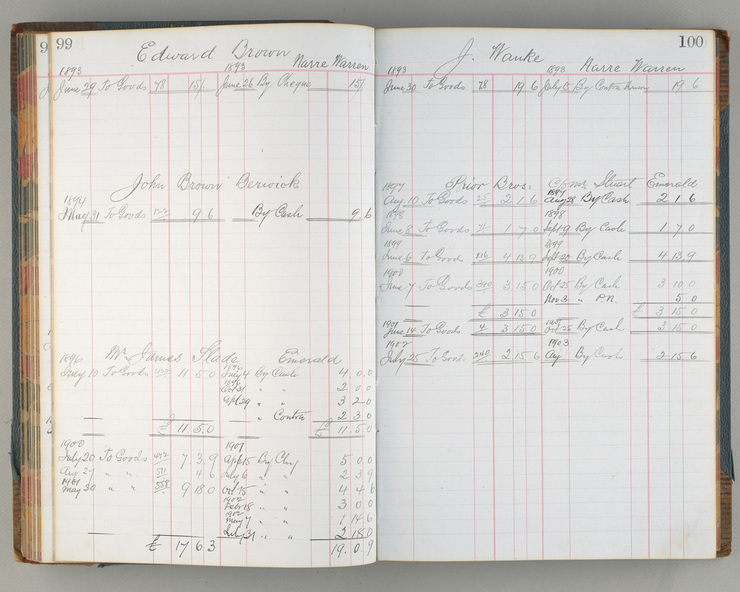 99
Edward Brown Narre Warren
1893 1893
June 29 To Goods 78 15/ June 26 By Cheque 15/
John Brown Berwick
1894
May 31 To Goods 9 6 By Cash 9 6
1896 Mr James Slade Emerald
July 10 To Goods 11 5 0 July 4 By Cash 4 0 0
Oct 31 " " 2 0 0
29 " " 3 2 0
" Contra 2 3 0
£ 11 5 0 £ 11 5 0
1900 1901
July 20 To Goods 492 7 3 9 Apl 15 By Chq 5 0 0
Aug 27 " " 511 4 6 July 6 " " 2 3 9
1901
May 30 " " 558 9 18 0 Oct 15 " " 4 4 6
1902
Feb 18 " " 3 0 0
1902
May 7 " " 1 14 6
July 31 " " 2 18 0
£ 17 6 3 19 0 9
100
J. Wanke
1893 1893 Narre Warren
June 30 To Goods 78 19 6 July 5 By Contra 19 6
1897 Prior Bros. C/o Mr Stuart Emerald
1897
Aug 10 To Goods 25 2 1 6 Aug 28 By Cash 2 1 6
1898 1898
June 8 To Goods 1 7 0 Sept 9 By Cash 1 7 0
1899 1899
June 6 To Goods 216 4 13 9 Sept 20 By Cash 4 13 9
1900 1900
June 7 To Goods 3 15 0 Oct 25 By Cash 3 10 0
Nov 3 " P.N. 5 0
£ 3 15 0 £ 3 15 0
1901 1901
June 14 To Goods 4 3 15 0 Oct 25 By Cash 3 15 0
1902 1903
July 25 To Goods 2 15 6 Aug By Cash 2 15 6